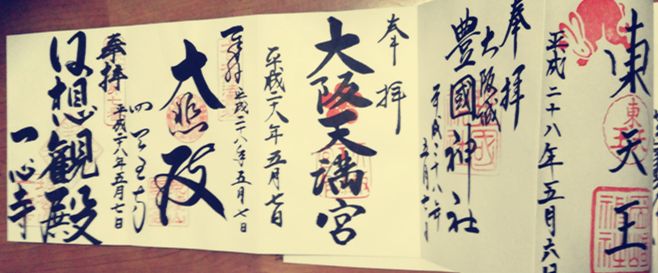 東天王
平成二十八年五月六日
奉拝
大阪城
豊國神社
平成二十八年
奉拝
大阪天満宮
平成二十八年五月七日
奉拝
平成二十八年五月七日
大悲殿
四天王寺
奉拝
平成二十八年五月七日
日想観殿
一心寺